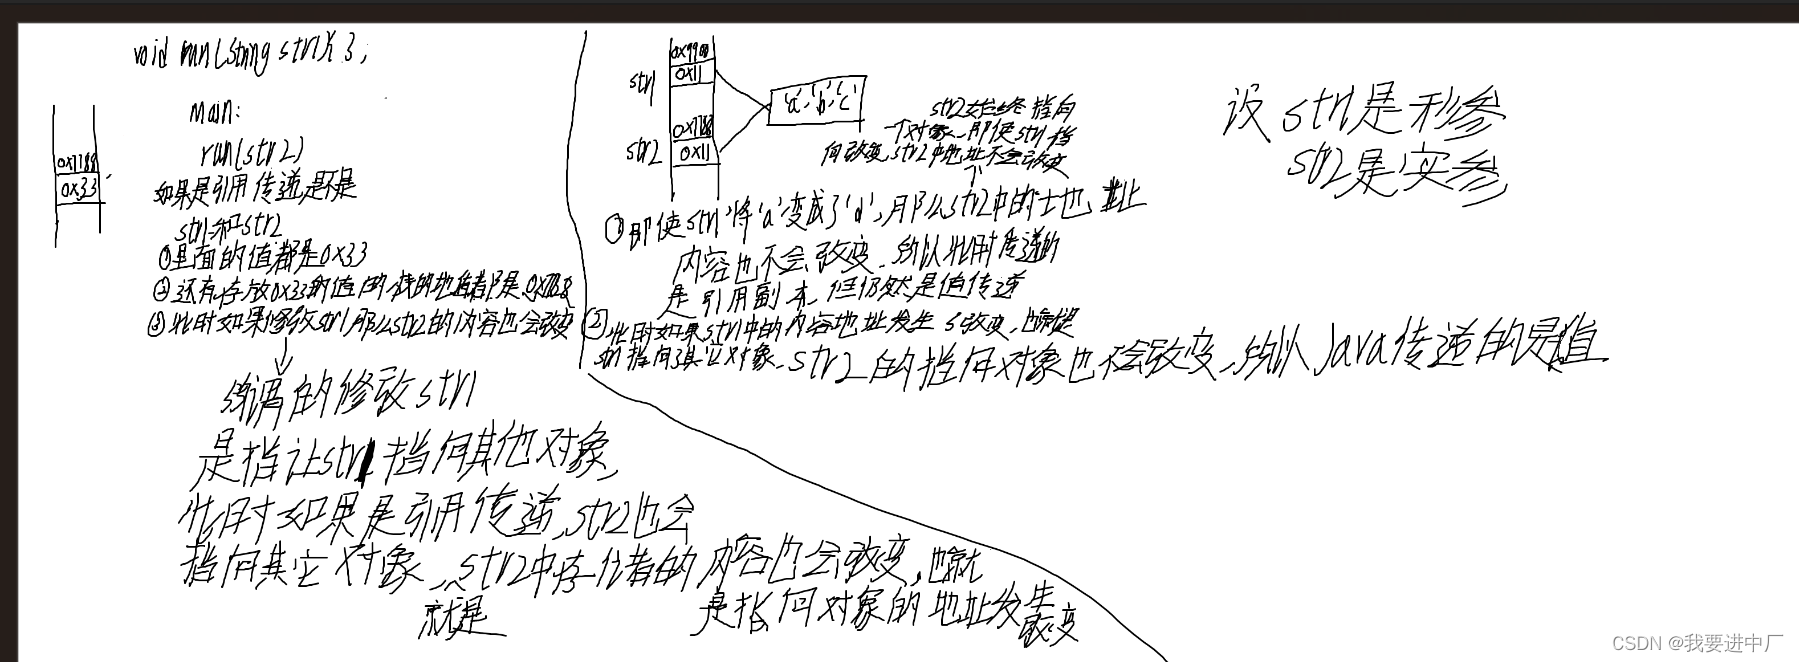 void run(String str1){ };
main:
run(str2)
0x1188
0x33
如果是引用传递,是不是
str1和str2
①里面的值都是0x33
②还有存放0x33的值的栈的地址都是0x1188
③此时如果修改str1那么str2的内容也会改变
强调的修改str1
是指让str1指向其他对象,
此时如果是引用传递,str2也会
指向其它对象,就是str2中存储着的内容也会改变,也就
是指向对象的地址发生
改变
str1
0x9900
0x11
str2
0x1188
0x11
'a','b','c'
str2始终指向
一个对象,即使str1指
向改变,str2中地址不会改变
①即使str1将'a'变成了'd',那么str2中的地址
内容也不会改变,所以此时传递的
是引用副本,但仍然是值传递
②此时如果str1中的内容地址发生了改变,也就是
str1指向了其它对象,str2的指向对象也不会改变,所以Java传递的是值
设str1是形参
str2是实参,
CSDN @我要进中厂